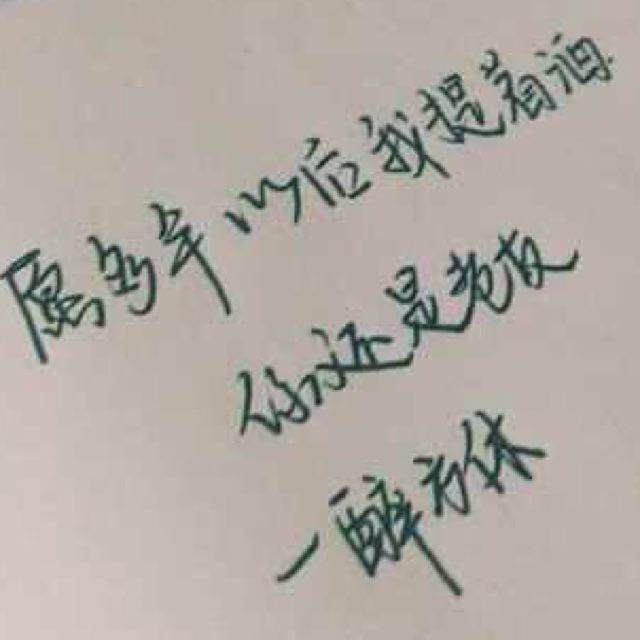 愿多年以后我提着酒
你还是老友
一醉方休